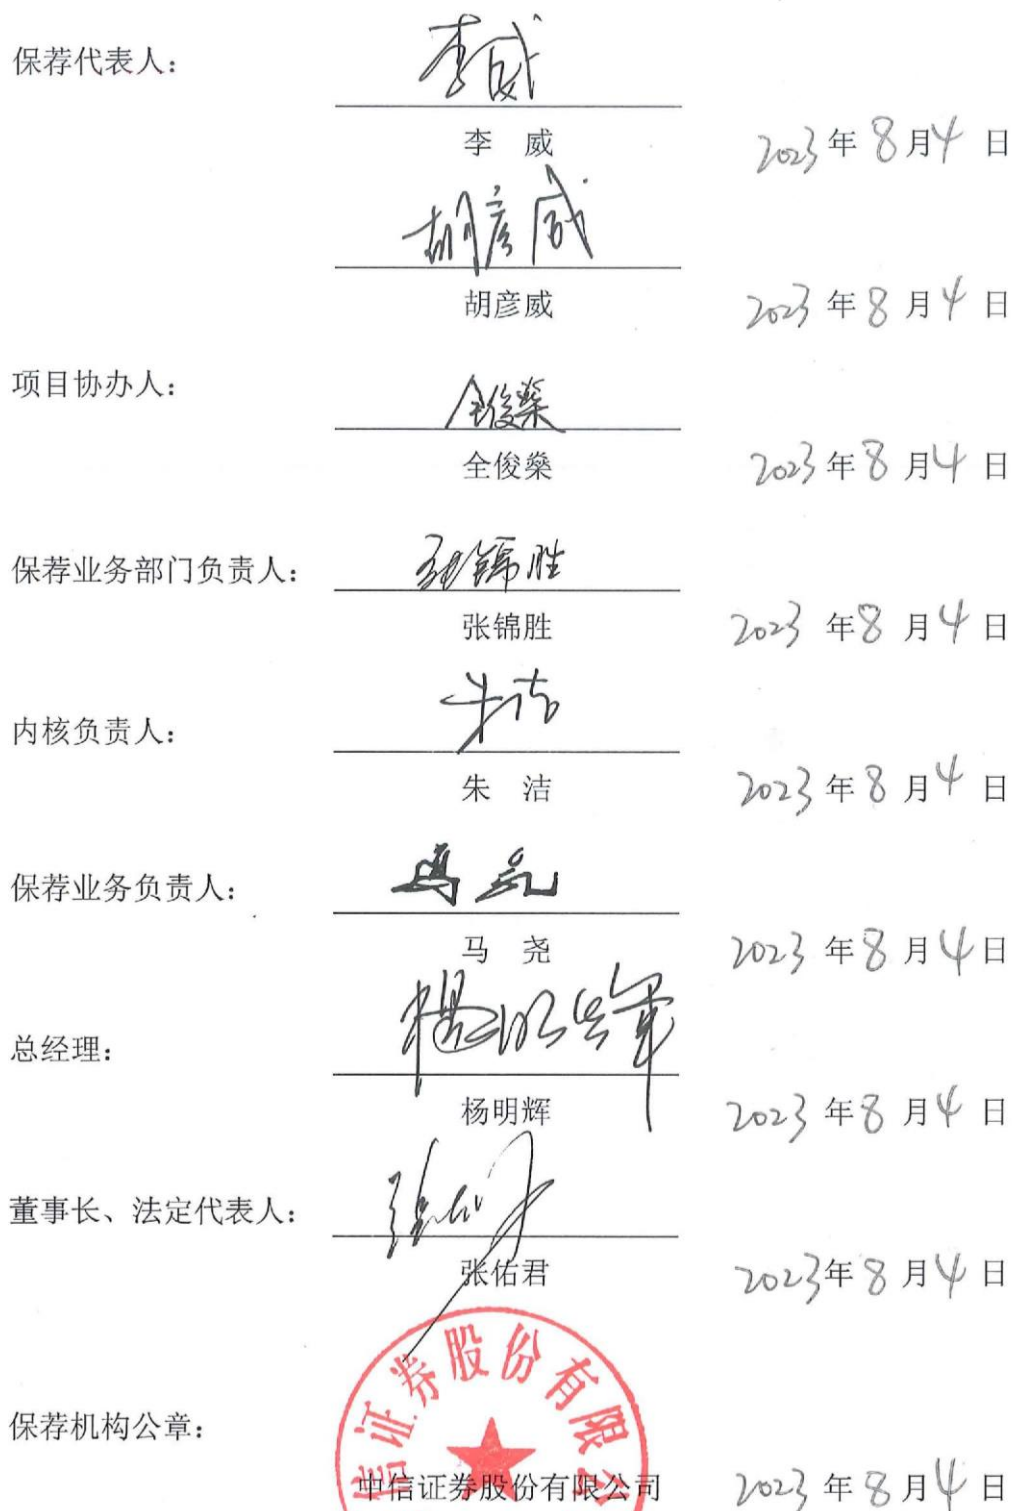 保荐代表人：
李威
李 威
2023年8月4日
胡彦威
胡彦威
2023年8月4日
项目协办人：
全俊燊
全俊燊
2023年8月4日
保荐业务部门负责人：
张锦胜
张锦胜
2023年8月4日
内核负责人：
朱洁
朱 洁
2023年8月4日
保荐业务负责人：
马尧
马 尧
2023年8月4日
总经理：
杨明辉
杨明辉
2023年8月4日
董事长、法定代表人：
张佑君
张佑君
2023年8月4日
信证券股份有限公
保荐机构公章：
中信证券股份有限公司
2023年8月4日